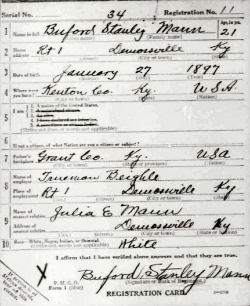 Serial No. 34 Registration No. 11
1 Name in full Buford Stanley Mann Age, in yrs. 21
(Given name) (Family name)
2 Rt 1 Demossville Ky
3 Date of birth January 27 1897
4 Where were you born? Kenton Co. Ky. U.S.A.
5 I am
1. A native of the United States.
6 If not a citizen, of what Nation are you a citizen or subject?
7 Father's birthplace Grant Co. Ky. USA
8 Name of employer Trueman Beighle
Place of employment Rt 1 Demossville Ky
9 Name of nearest relative Julia E Mann
Address of nearest relative Demossville Ky
10 Race—White, Negro, Indian, or Oriental
White
I affirm that I have verified above answers and that they are true.
X Buford Stanley Mann
P. M. G. O.
Form 1 (blue)
(Signature or Mark of Registrant.)
REGISTRATION CARD